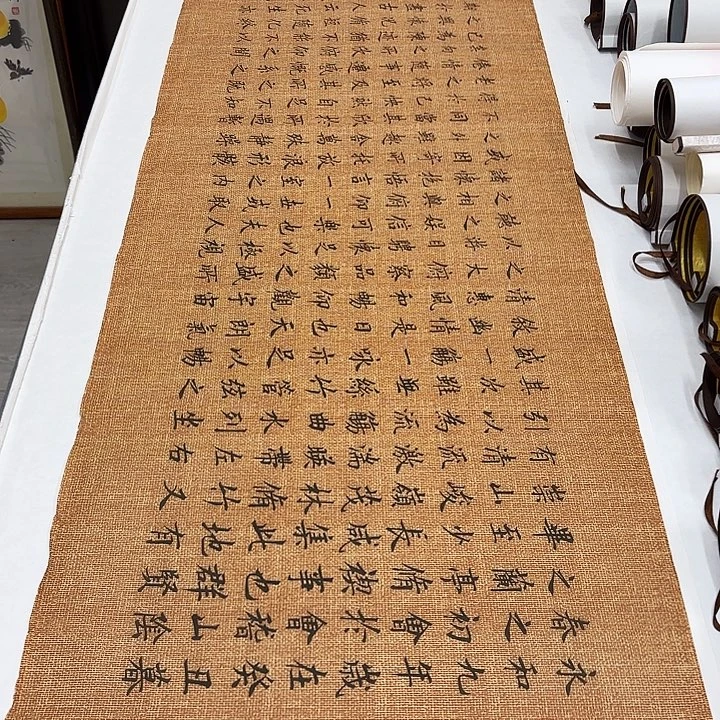 永和九年歲在癸丑暮
春之初會於會稽山陰
之蘭亭脩禊事也群賢
畢至少長咸集此地有
崇山峻嶺茂林脩竹又
有清流激湍暎帶左右
引以為流觴曲水列坐
其次雖無絲竹管弦之
盛一觴一詠亦足以暢
敘幽情是日也天朗氣
清惠風和暢仰觀宇宙
之大俯察品類之盛所
以遊目騁懷足以極視
聽之娛信可樂也夫人
之相與俯仰一世或取
諸懷抱悟言一室之內
或因寄所託放浪形骸
之外雖趣舍萬殊靜躁
不同當其欣於所遇暫
得於己快然自足不知
老之將至及其所之既
倦情隨事遷感慨係之
矣向之所欣俛仰之間
已為陳迹猶不能不以